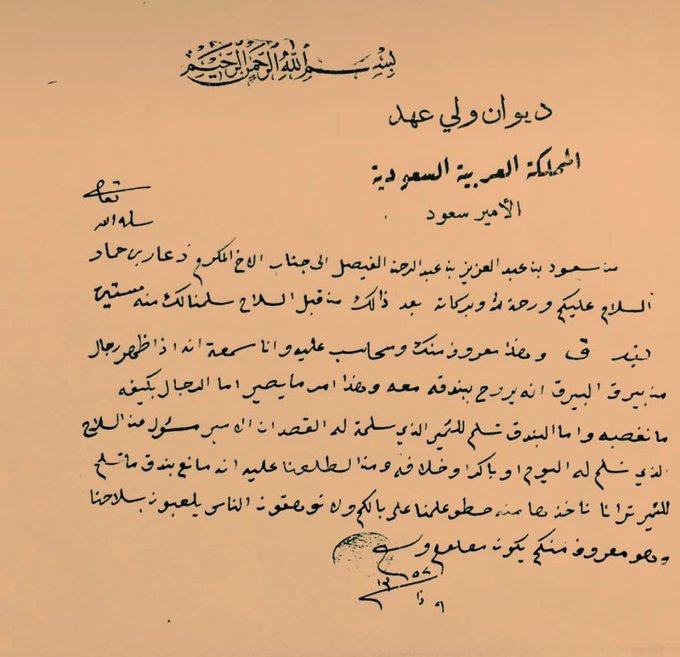 بسم الله الرحمن الرحيم
ديوان ولي عهد
المملكة العربية السعودية
الأمير سعود
تعالى
سلمه الله
من سعود بن عبد العزيز بن عبد الرحمن الفيصل الى جناب الاخ المكرم ذعار بن حماد
السلام عليكم ورحمة الله وبركاته بعد ذالك من قبل السلاح سلمنا لك منه ستين
بندق وهذا معروف منك ومحاسب عليه وانا سمعة انه اذا ظهر رجال
من بيرق البيرق انه يروح ببندقه معه وهذا امر ما يصير اما الرجال بكيفه
ما نغصبه واما البندق تسلم للامير الذي سلمة له القصد ان الامير مسئول عن السلاح
الذي تسلم له اليوم او باكر او خلافه ومن اطلعنا عليه انه مانع بندق ما تسلم
للامير ترانا ناخذها منه حطو علمنا على بالكم ولا الناس يلعبون بسلاحنا
وهو معروف منكم يكون معلوم و
١٣٥٧
٩ ذا